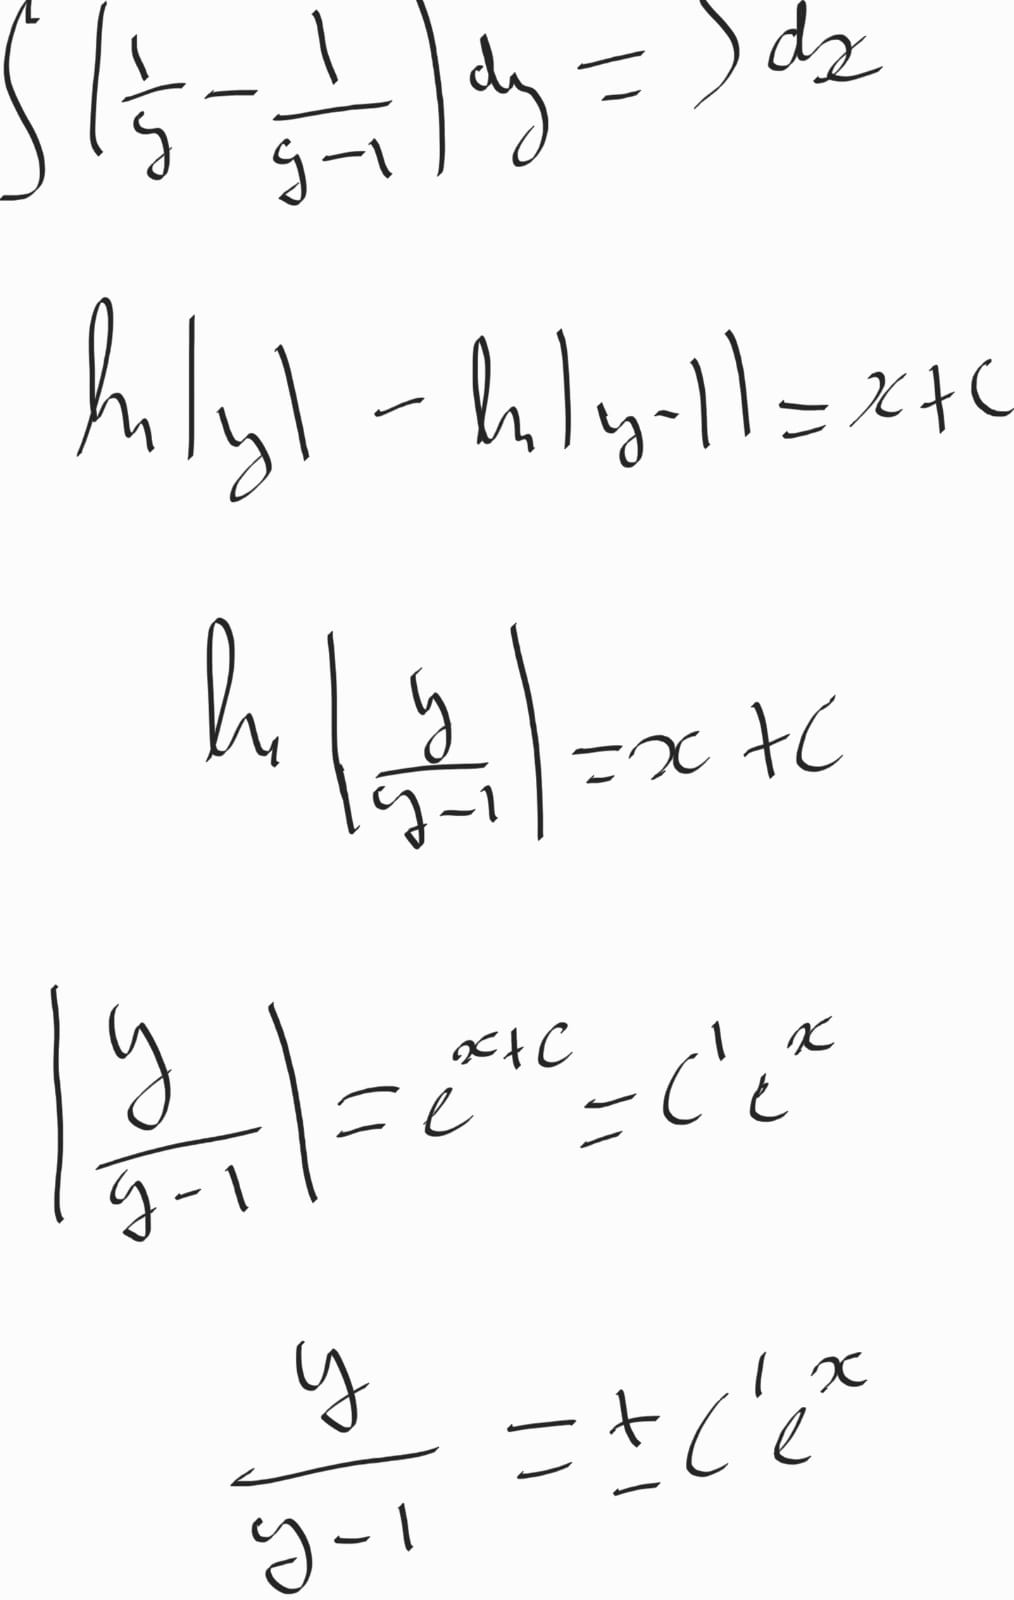 ∫ (1/y − 1/(y−1)) dy = ∫ dx
ln|y| − ln|y−1| = x + C
ln |y/(y−1)| = x + C
|y/(y−1)| = e^(x+C) = C' e^x
y/(y−1) = ± C' e^x